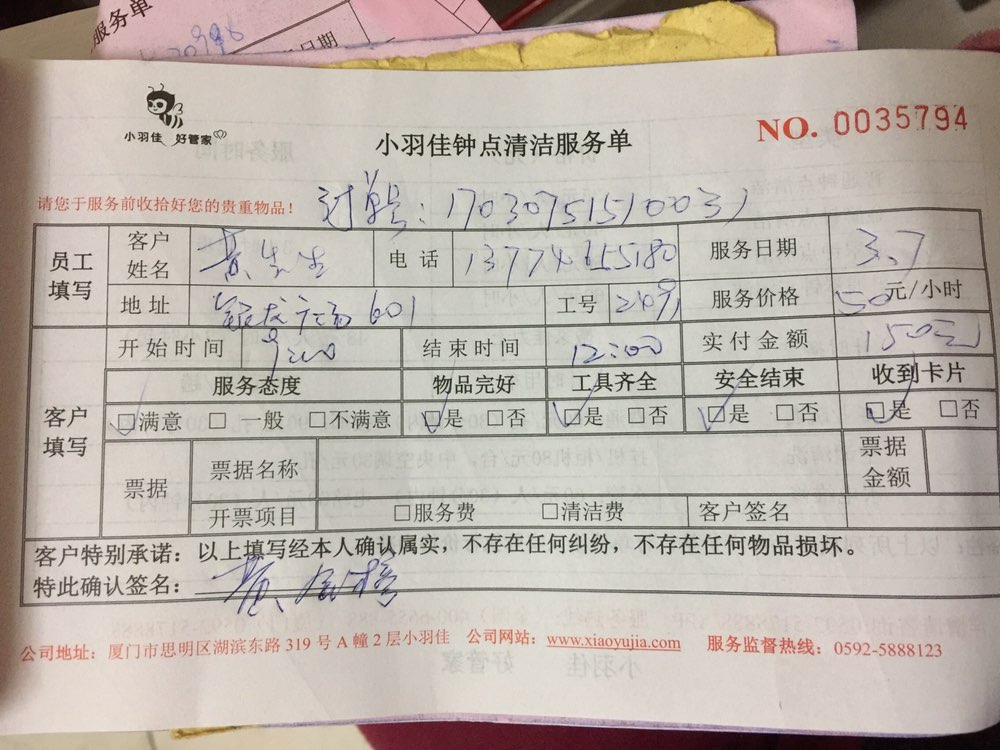 服务单
日期
小羽佳 好管家
小羽佳钟点清洁服务单
NO. 0035794
请您于服务前收拾好您的贵重物品!
订单号:17030751510031
员工填写
客户姓名 黄先生 电话 服务日期 3.7
地址 601 工号 服务价格 50元/小时
开始时间 9:00 结束时间 12:00 实付金额 150元
客户填写
服务态度 物品完好 工具齐全 安全结束 收到卡片
☑满意 □一般 □不满意 ☑是 □否 ☑是 □否 ☑是 □否 ☑是 □否
票据 票据名称 票据金额
开票项目 □服务费 □清洁费 客户签名
客户特别承诺:以上填写经本人确认属实,不存在任何纠纷,不存在任何物品损坏。
特此确认签名:黄
公司地址:厦门市思明区湖滨东路 319 号 A 幢 2 层小羽佳 公司网站:www.xiaoyujia.com 服务监督热线:0592-5888123